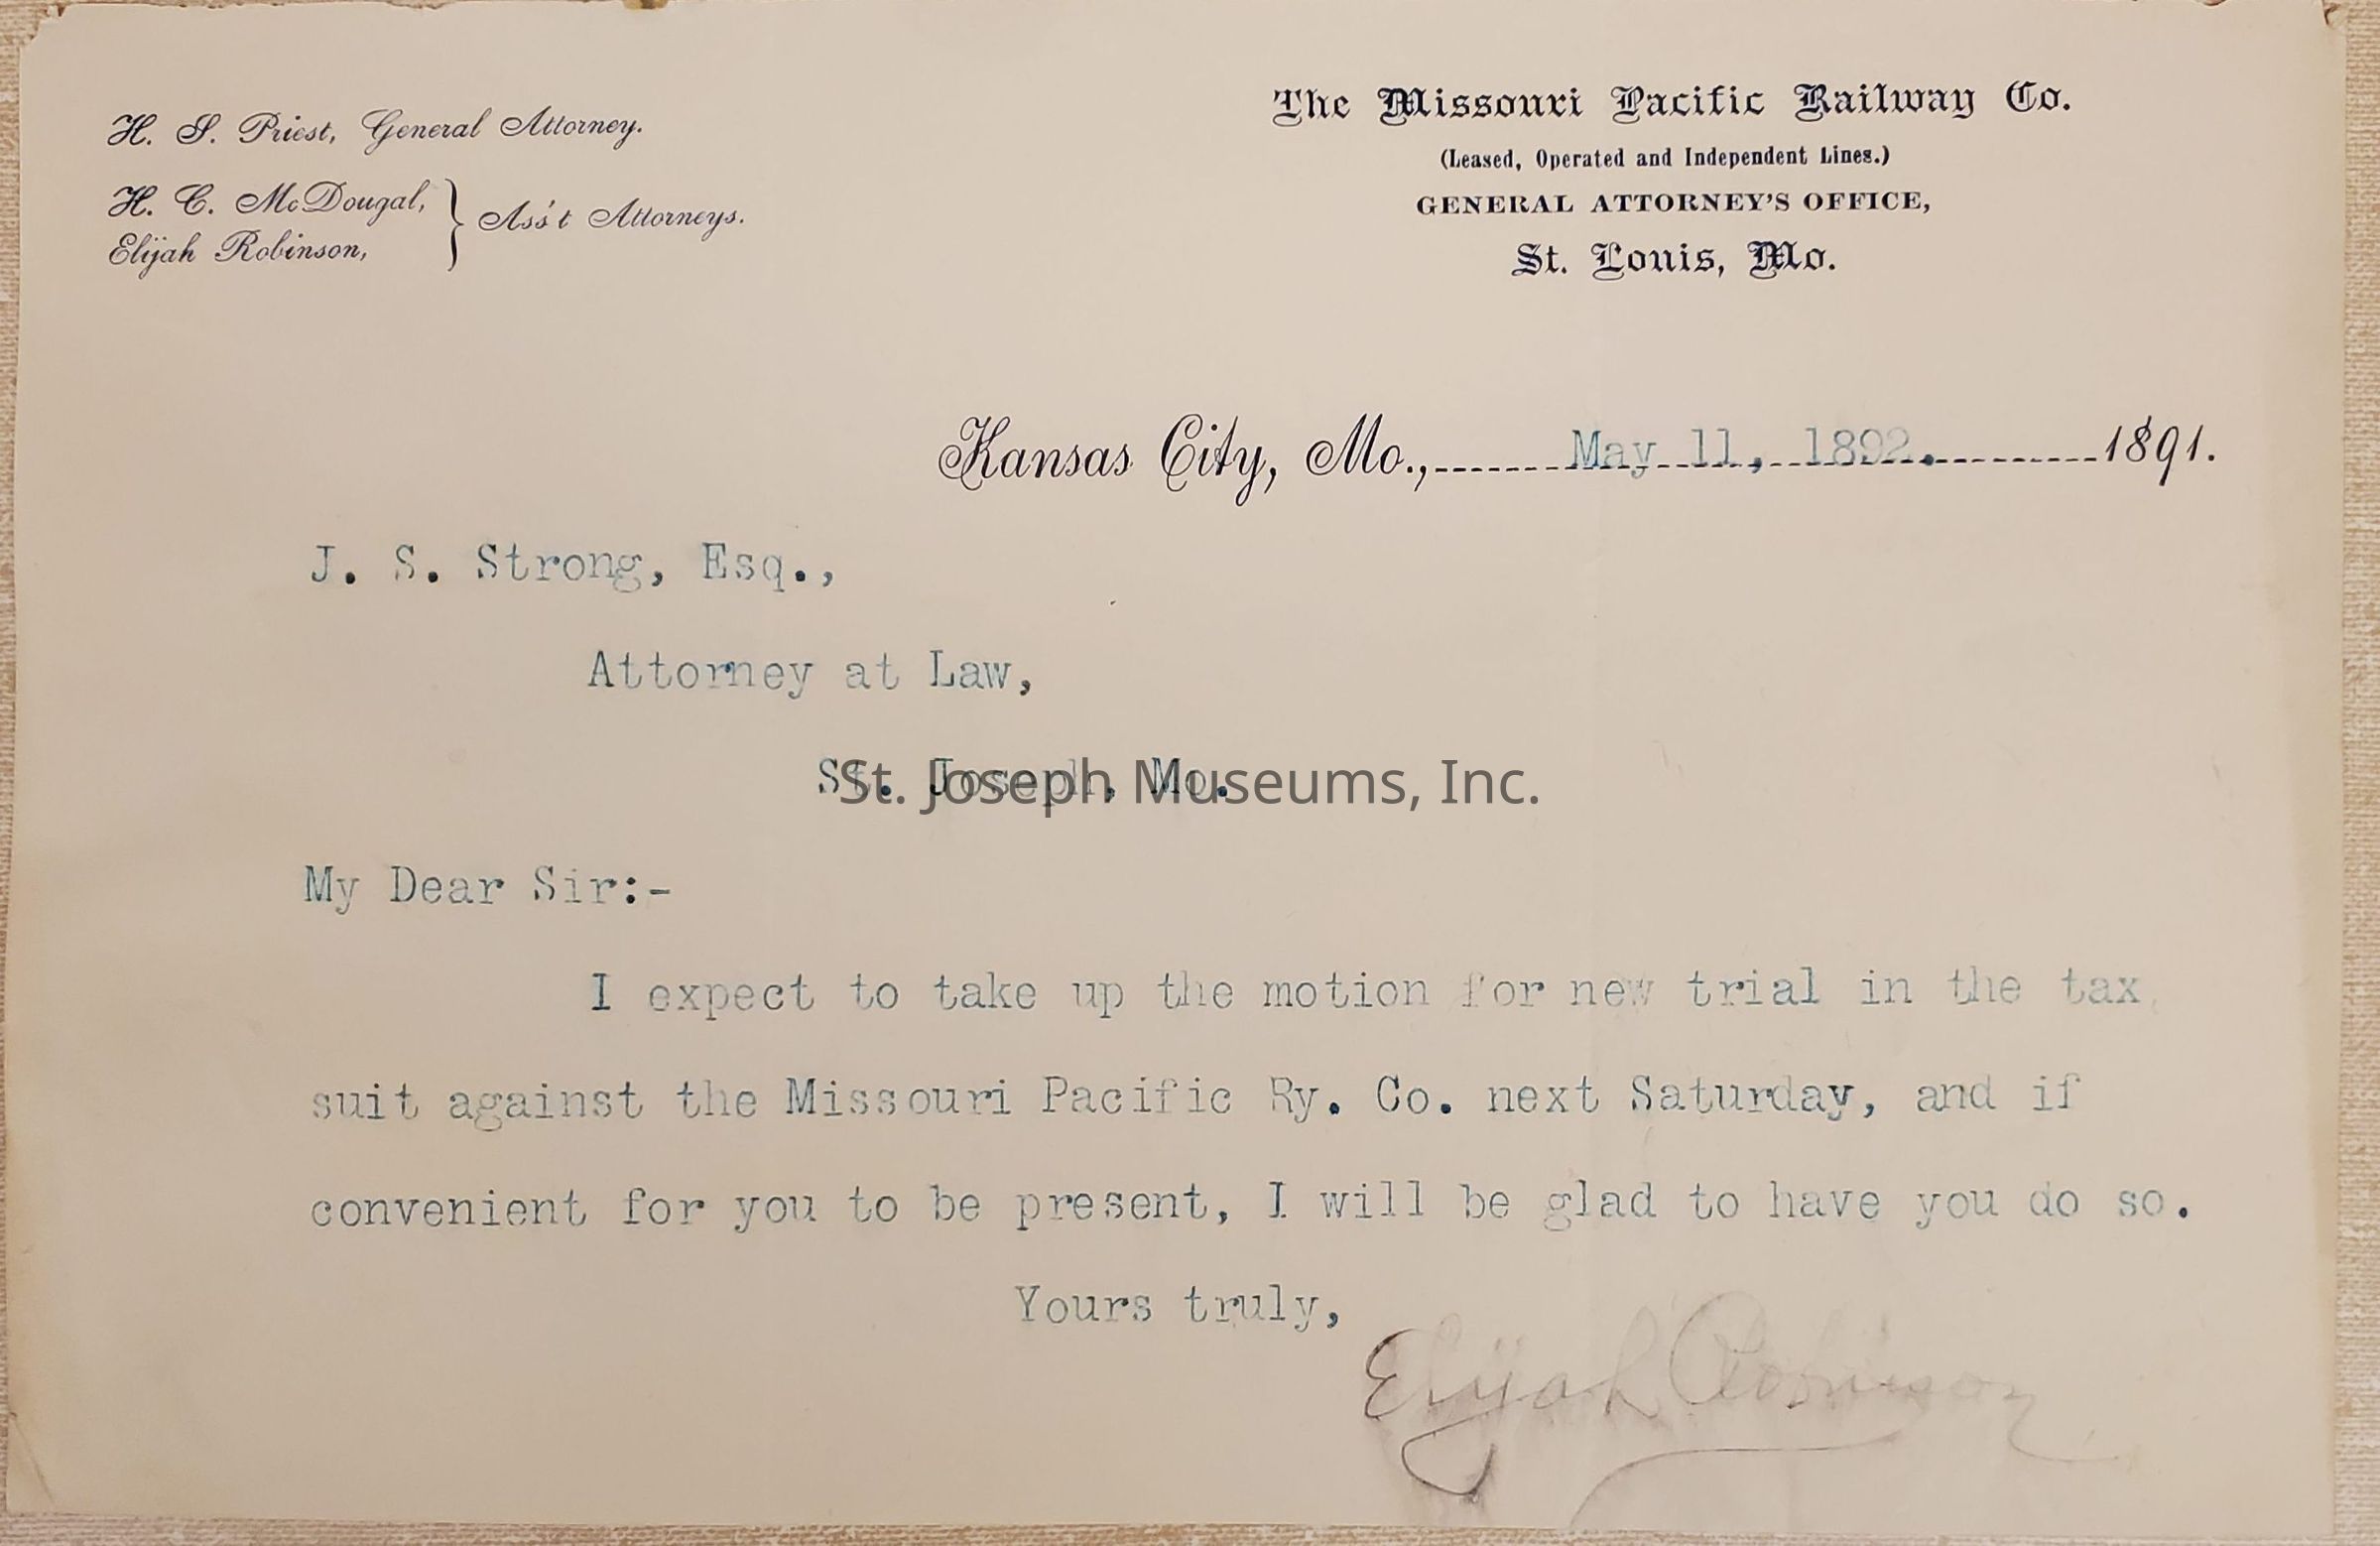 H. S. Priest, General Attorney.
H. C. McDougal,
Elijah Robinson,
} Ass't Attorneys.
The Missouri Pacific Railway Co.
(Leased, Operated and Independent Lines.)
GENERAL ATTORNEY'S OFFICE,
St. Louis, Mo.
Kansas City, Mo., May 11, 1892. 1891.
J. S. Strong, Esq.,
Attorney at Law,
St. Joseph, Mo.
St. Joseph Museums, Inc.
My Dear Sir:-
I expect to take up the motion for new trial in the tax
suit against the Missouri Pacific Ry. Co. next Saturday, and if
convenient for you to be present, I will be glad to have you do so.
Yours truly,
Elijah Robinson